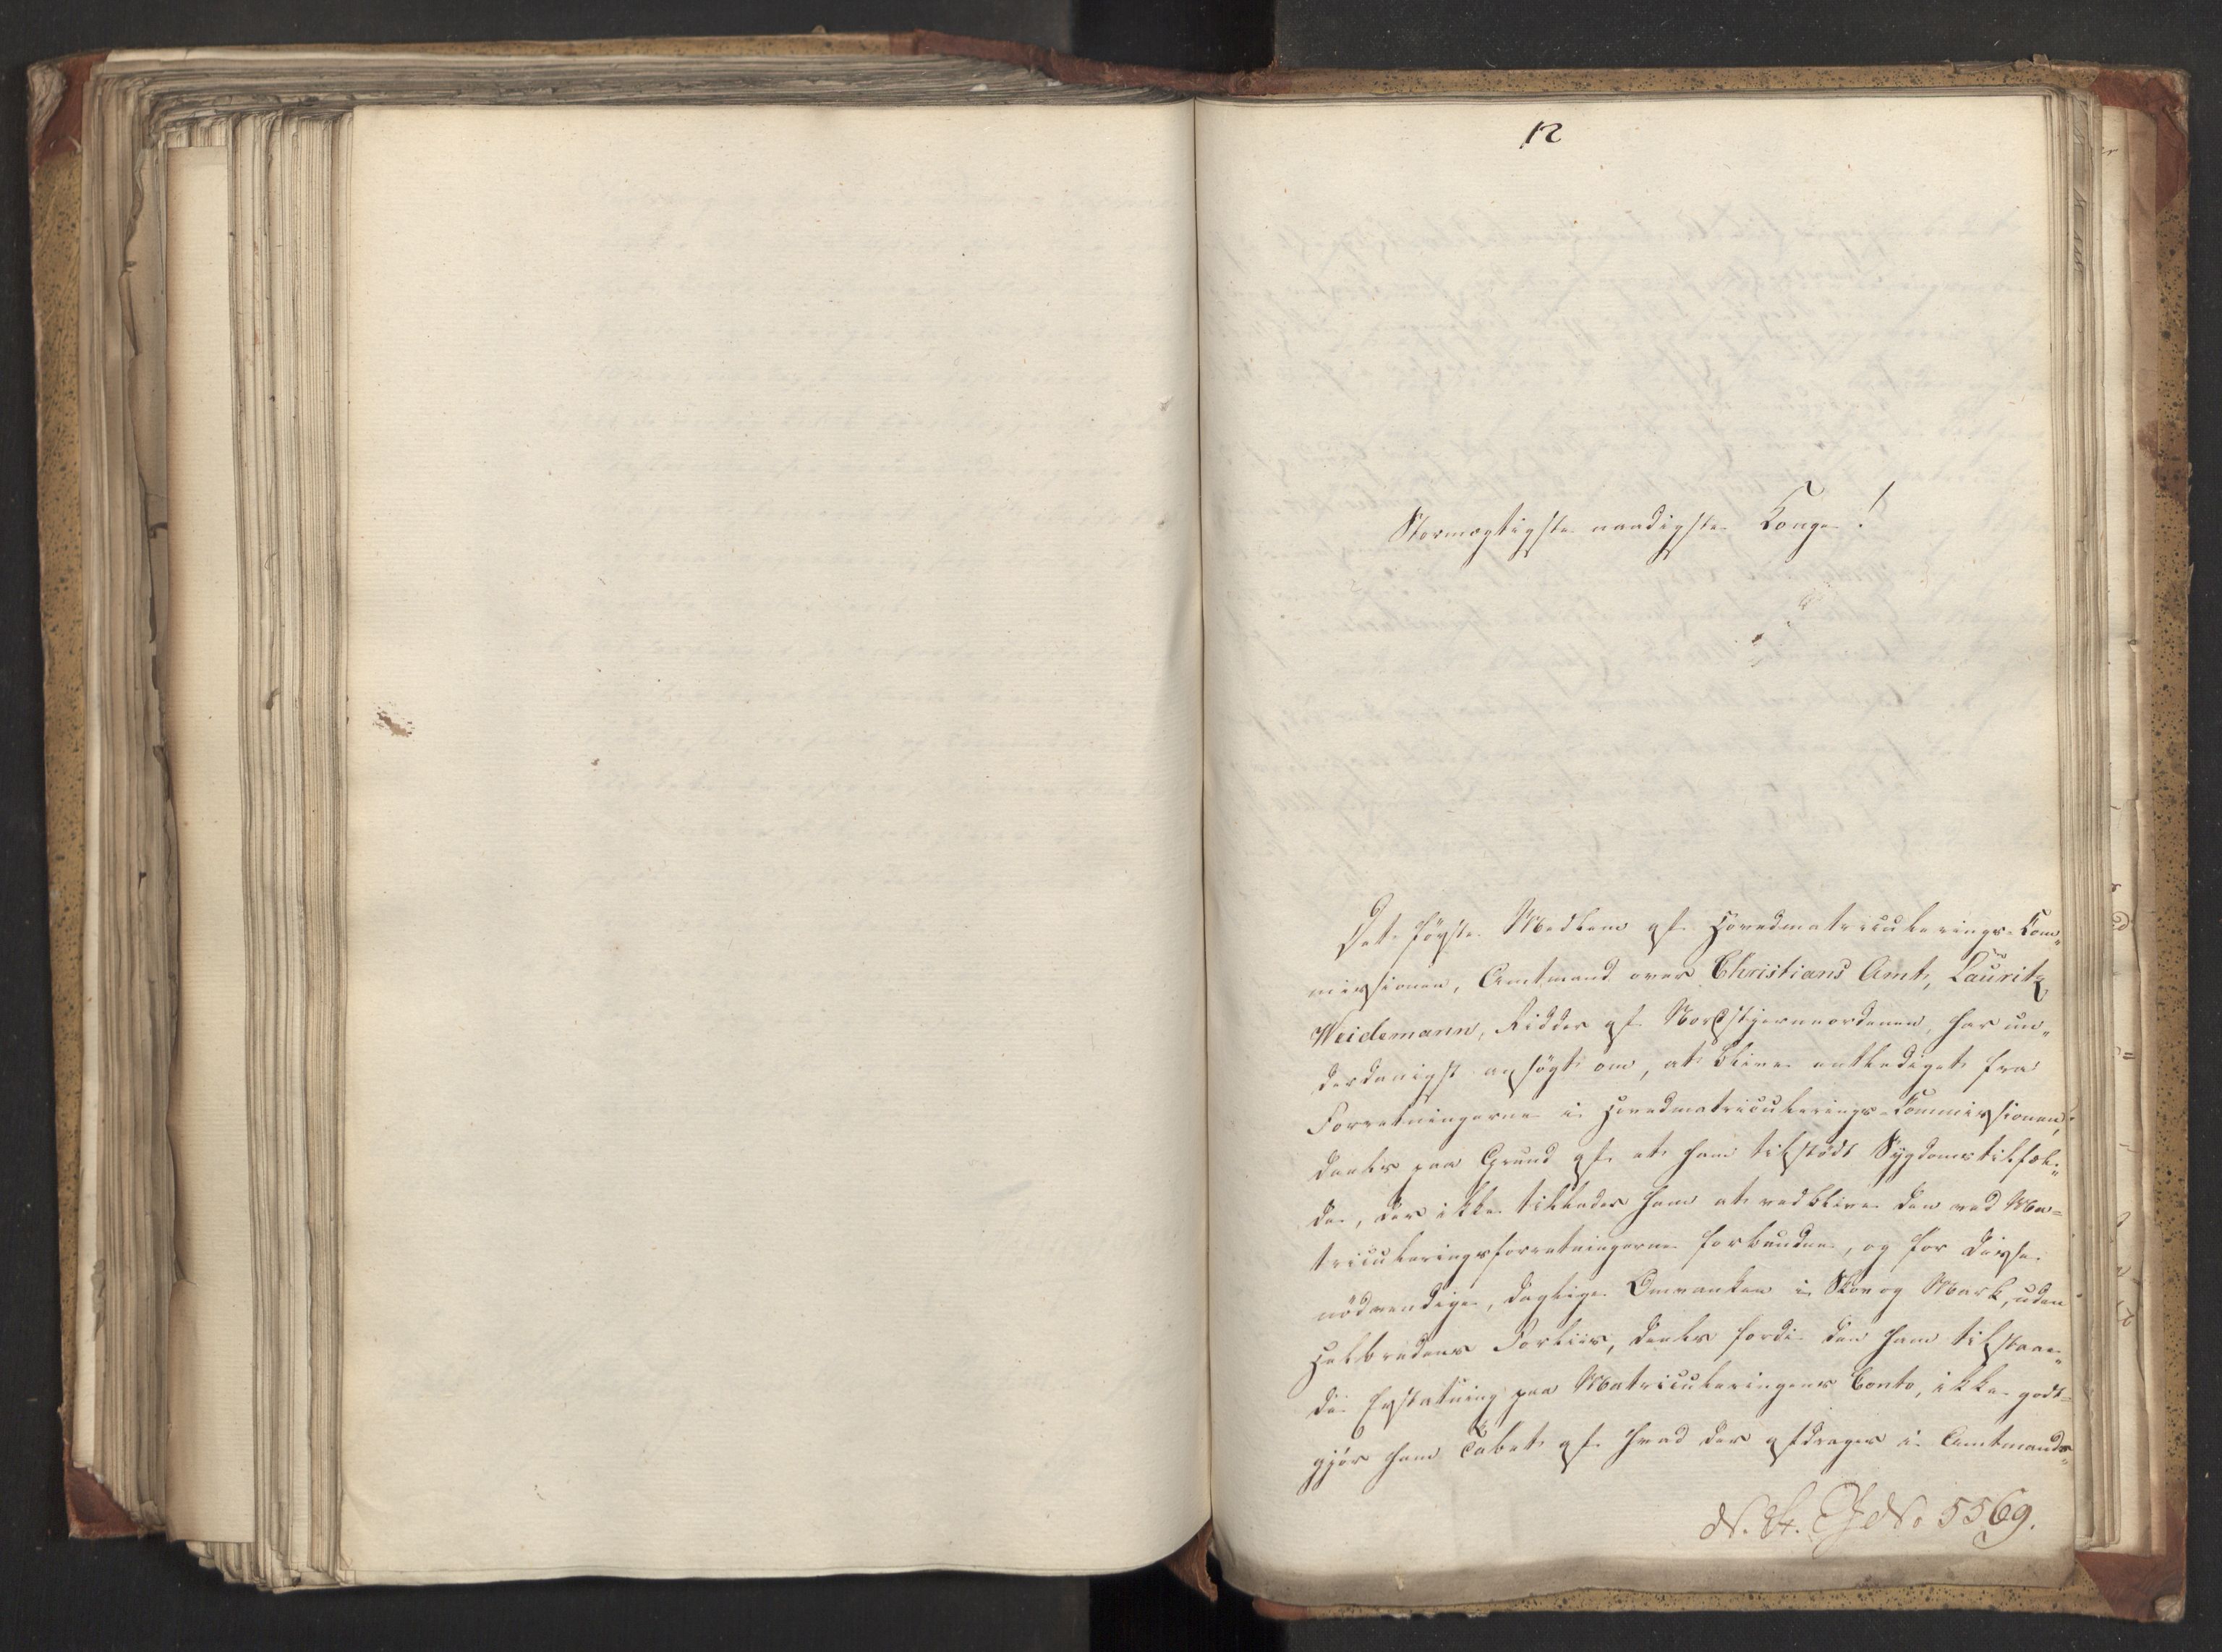 12
Stormægtigste naadigste Konge!
Det første Medlem af Hovedmatriculerings-Com„
missionen, Amtmand over Christians Amt, Lauritz
Weidemann, Ridder af Nordstjerneordenen, har un„
derdanigst ansøgt om, at blive entlediget fra
Forretningerne i Hovedmatriculerings-Commissionen,
deels paa Grund af et ham tilstødt Sygdomstilfæl„
de, der ikke tillader ham at vedblive den ved Ma=
triculeringsforretningerne forbundne, og for disse
nödvendige, daglige Omvanken i Skov og Mark, uden
Helbredens Forliis, deels fordi den ham tilstaae„
de Erstatning paa Matriculeringens Conto, ikke godt=
gjør ham Tabet af hvad der afdrages i Amtmands„
No 5569.